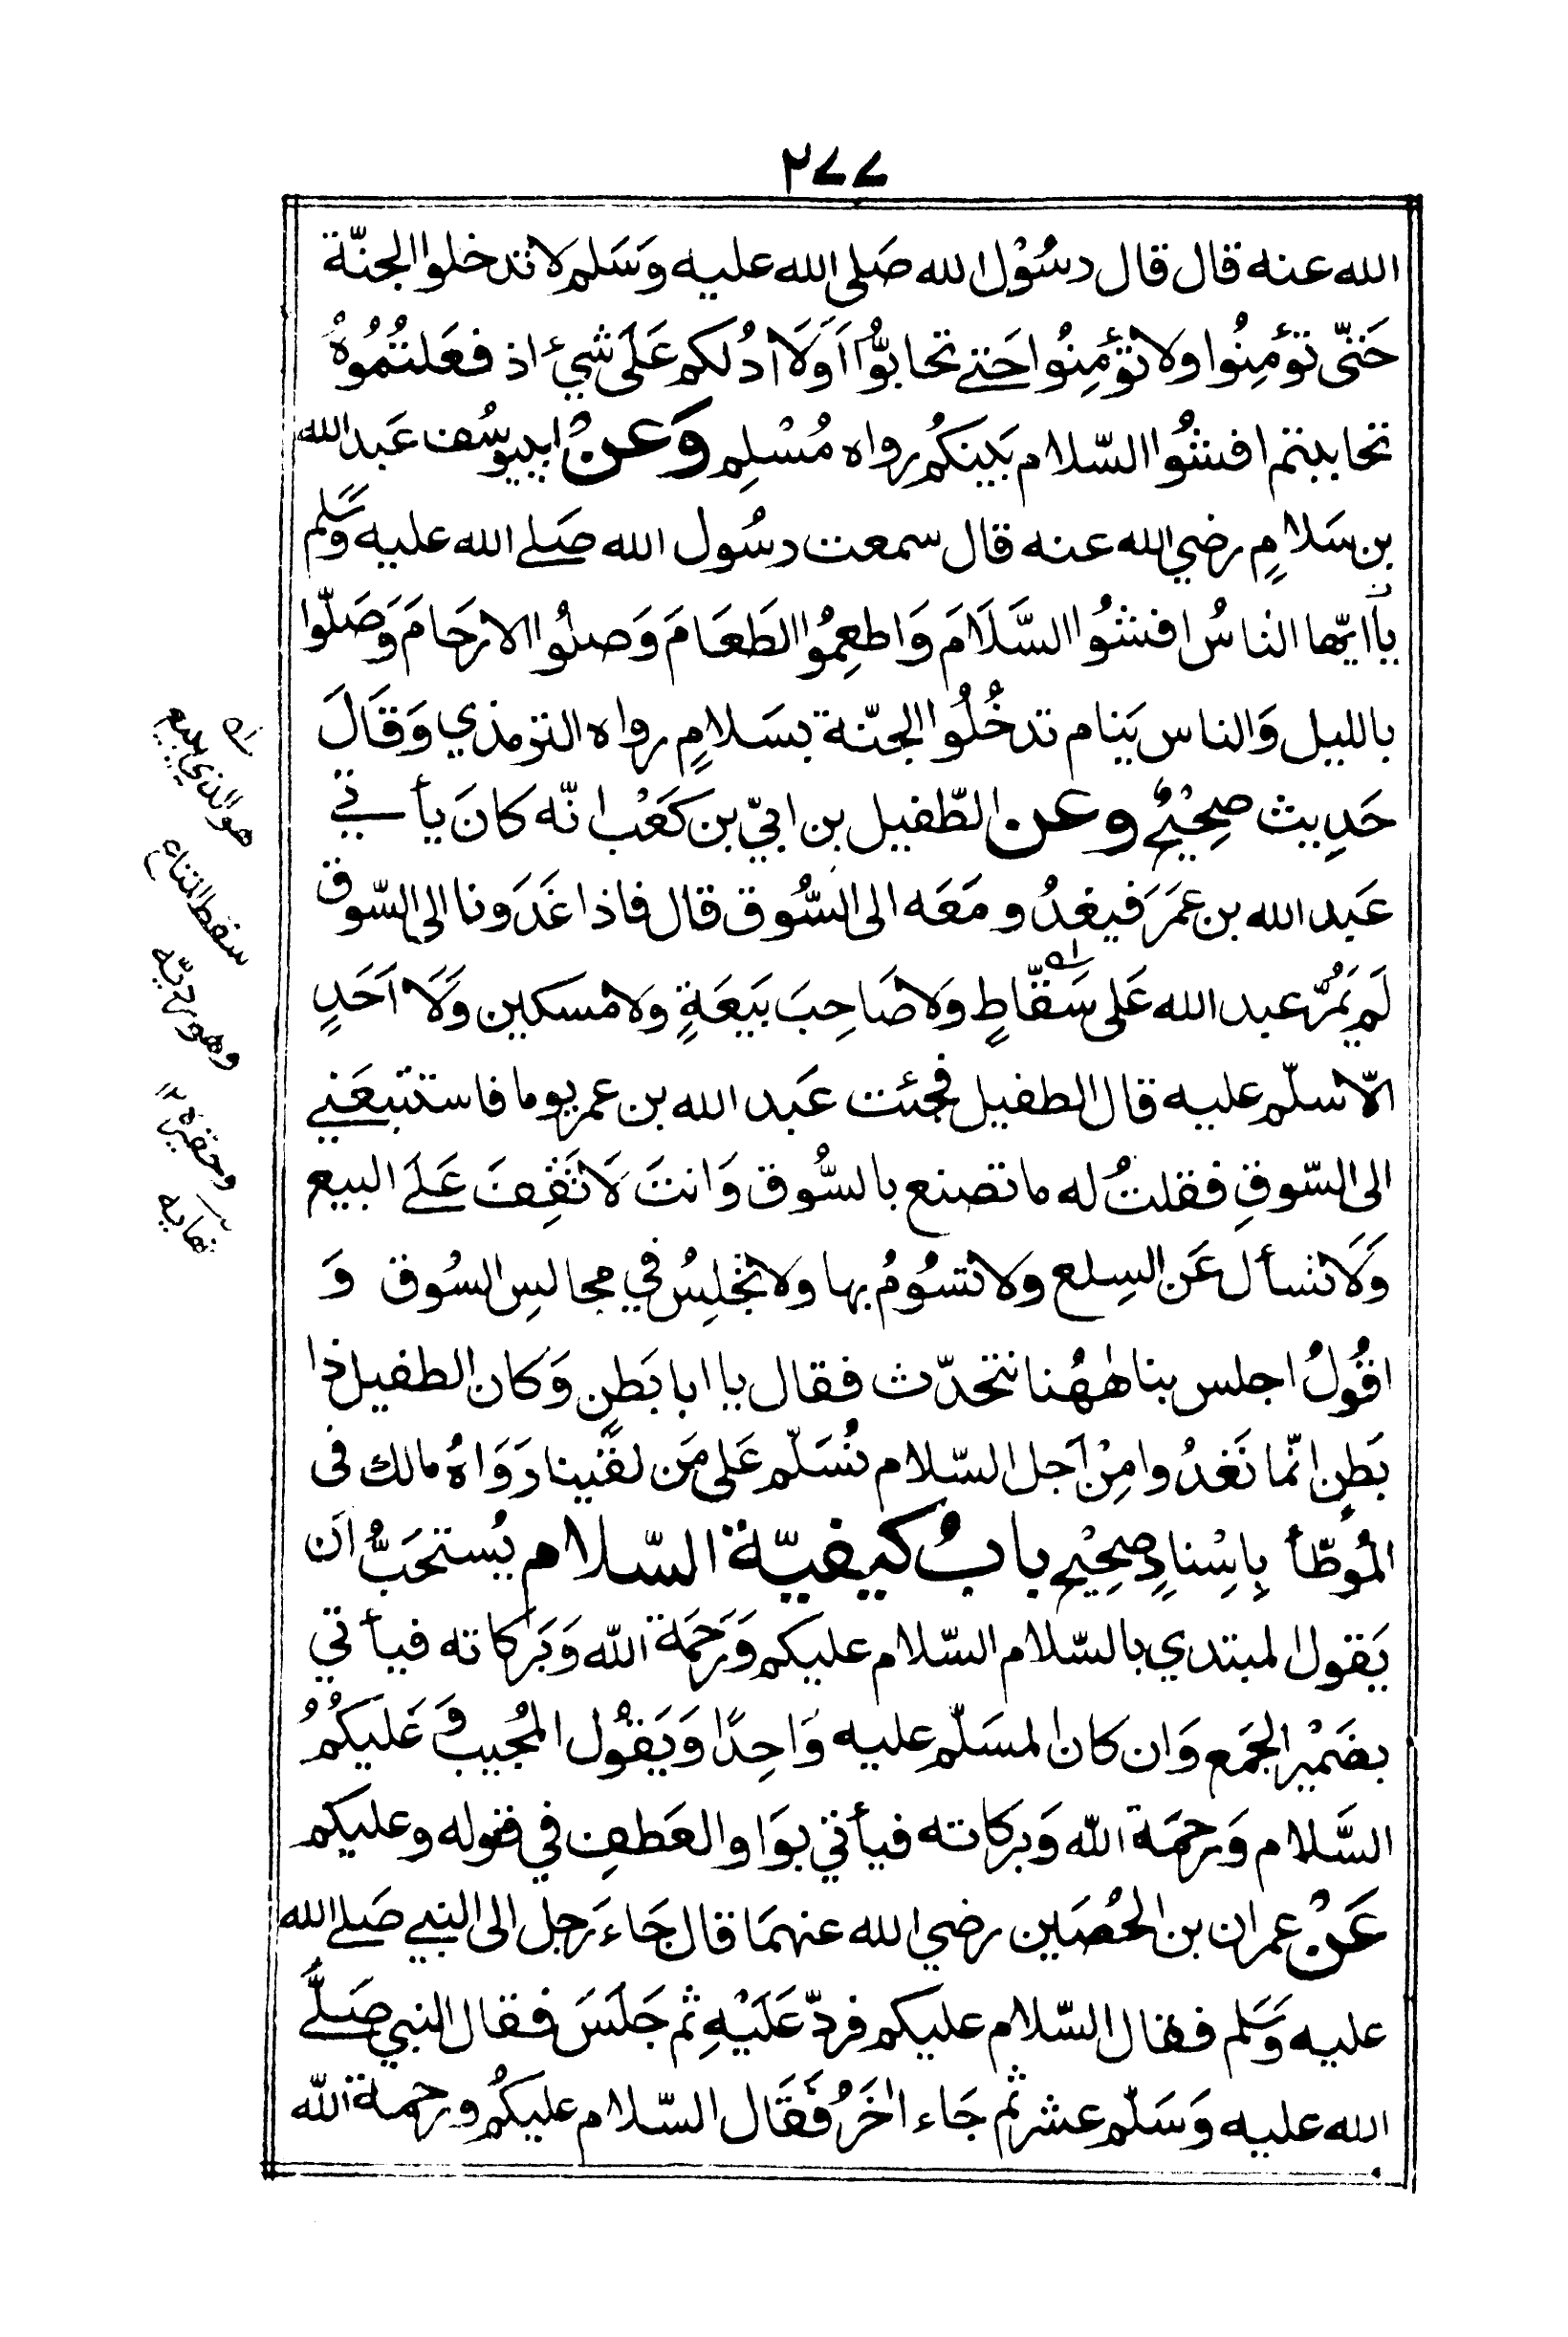 ٢٧٧
الله عنه قال قال رسُوْل الله صَلى الله عليه وَسَلم لا تدخلوا الجنّة
حَتىّ تؤمِنُوا ولا تؤمِنُوا حَتى تحابوُّا اَوَلَا ادُلكم عَلَى شئٍ اذ فعَلتُمُوهُ
تحاببتم افشُوا السّلام بَينكُم رواه مُسْلِم وَعنْ ابييوسُف عَبد الله
بن سَلامٍ رضي الله عنه قال سمعت رسُول الله صَلى الله عليه وسَلم
يا ايّها الناسُ افشُوا السَّلَامَ وَاطعِمُوا الطَعَامَ وَصلُوا الارحَامَ وَصَلّوا
بالليل وَالناس يَنام تدخُلُوا الجنّة بسَلامٍ رواه الترمذي وَقَالَ
حَدِيث صحِيْحٌ وعن الطّفيل بن ابيّ بن كَعْب انّه كانَ يأتي
عَبد الله بن عمَرَ فيغدُو مَعَه الى السُّوق قال فاذا غَدَونا الى السّوق
لَم يَمُرّ عبد الله عَلى سَقّاطٍ ولا صَاحِبَ بَيعَةٍ ولا مسكين وَلَا اَحَدٍ
الّا سلّم عليه قال الطفيل فجئت عَبد الله بن عمر يوما فاستتبعَني
الى السّوقِ فقلتُ له ما تصنع بالسُّوق وَانتَ لَا تَقِفَ عَلَى البيع
وَلَا تسأل عَن السِلع ولا تسُومُ بها ولا تجْلِسُ في مجالسِ السُوق وَ
اقُولُ اجلس بنا هٰهُنا نتحدّث فقال يا ابا بَطنٍ وَكان الطفيل ذا
بَطنٍ انّما نَغدُوا مِنْ اَجل السّلام نُسَلّم عَلى مَن لقَينا رَوَاهُ مالك فى
المُوطّأ بِاِسْنادٍ صحِيْح بابُ كيفيّة السّلام يُستحَبُّ ان
يَقول المبتدي بالسّلام السّلام عليكم وَرَحمَة الله وَبَركاته فيأتي
بضَمْير الجَمع وَان كان المسَلّم عليه وَاحِدًا وَيَقوُل المُجيب وَعَليكُمُ
السَّلام وَرحمَة الله وَبركاته فيأتي بوَاو العَطف في قوله وعليكم
عَنْ عمران بن الحُصَين رضي الله عنهمَا قال جَاءَ رَجل الى النبي صَلى الله
عليه وَسَلم فقال السّلام عليكم فردّ عَلَيْهِ ثم جَلَسَ فقال النبي صَلَّى
الله عليه وَسَلّم عشر ثُم جَاء اٰخَرُ فَقَال السّلام عليكُم ورحمة الله
هو الذي يبيع
سقط المتاع
وهو رديّه
وحقيره
نهايه